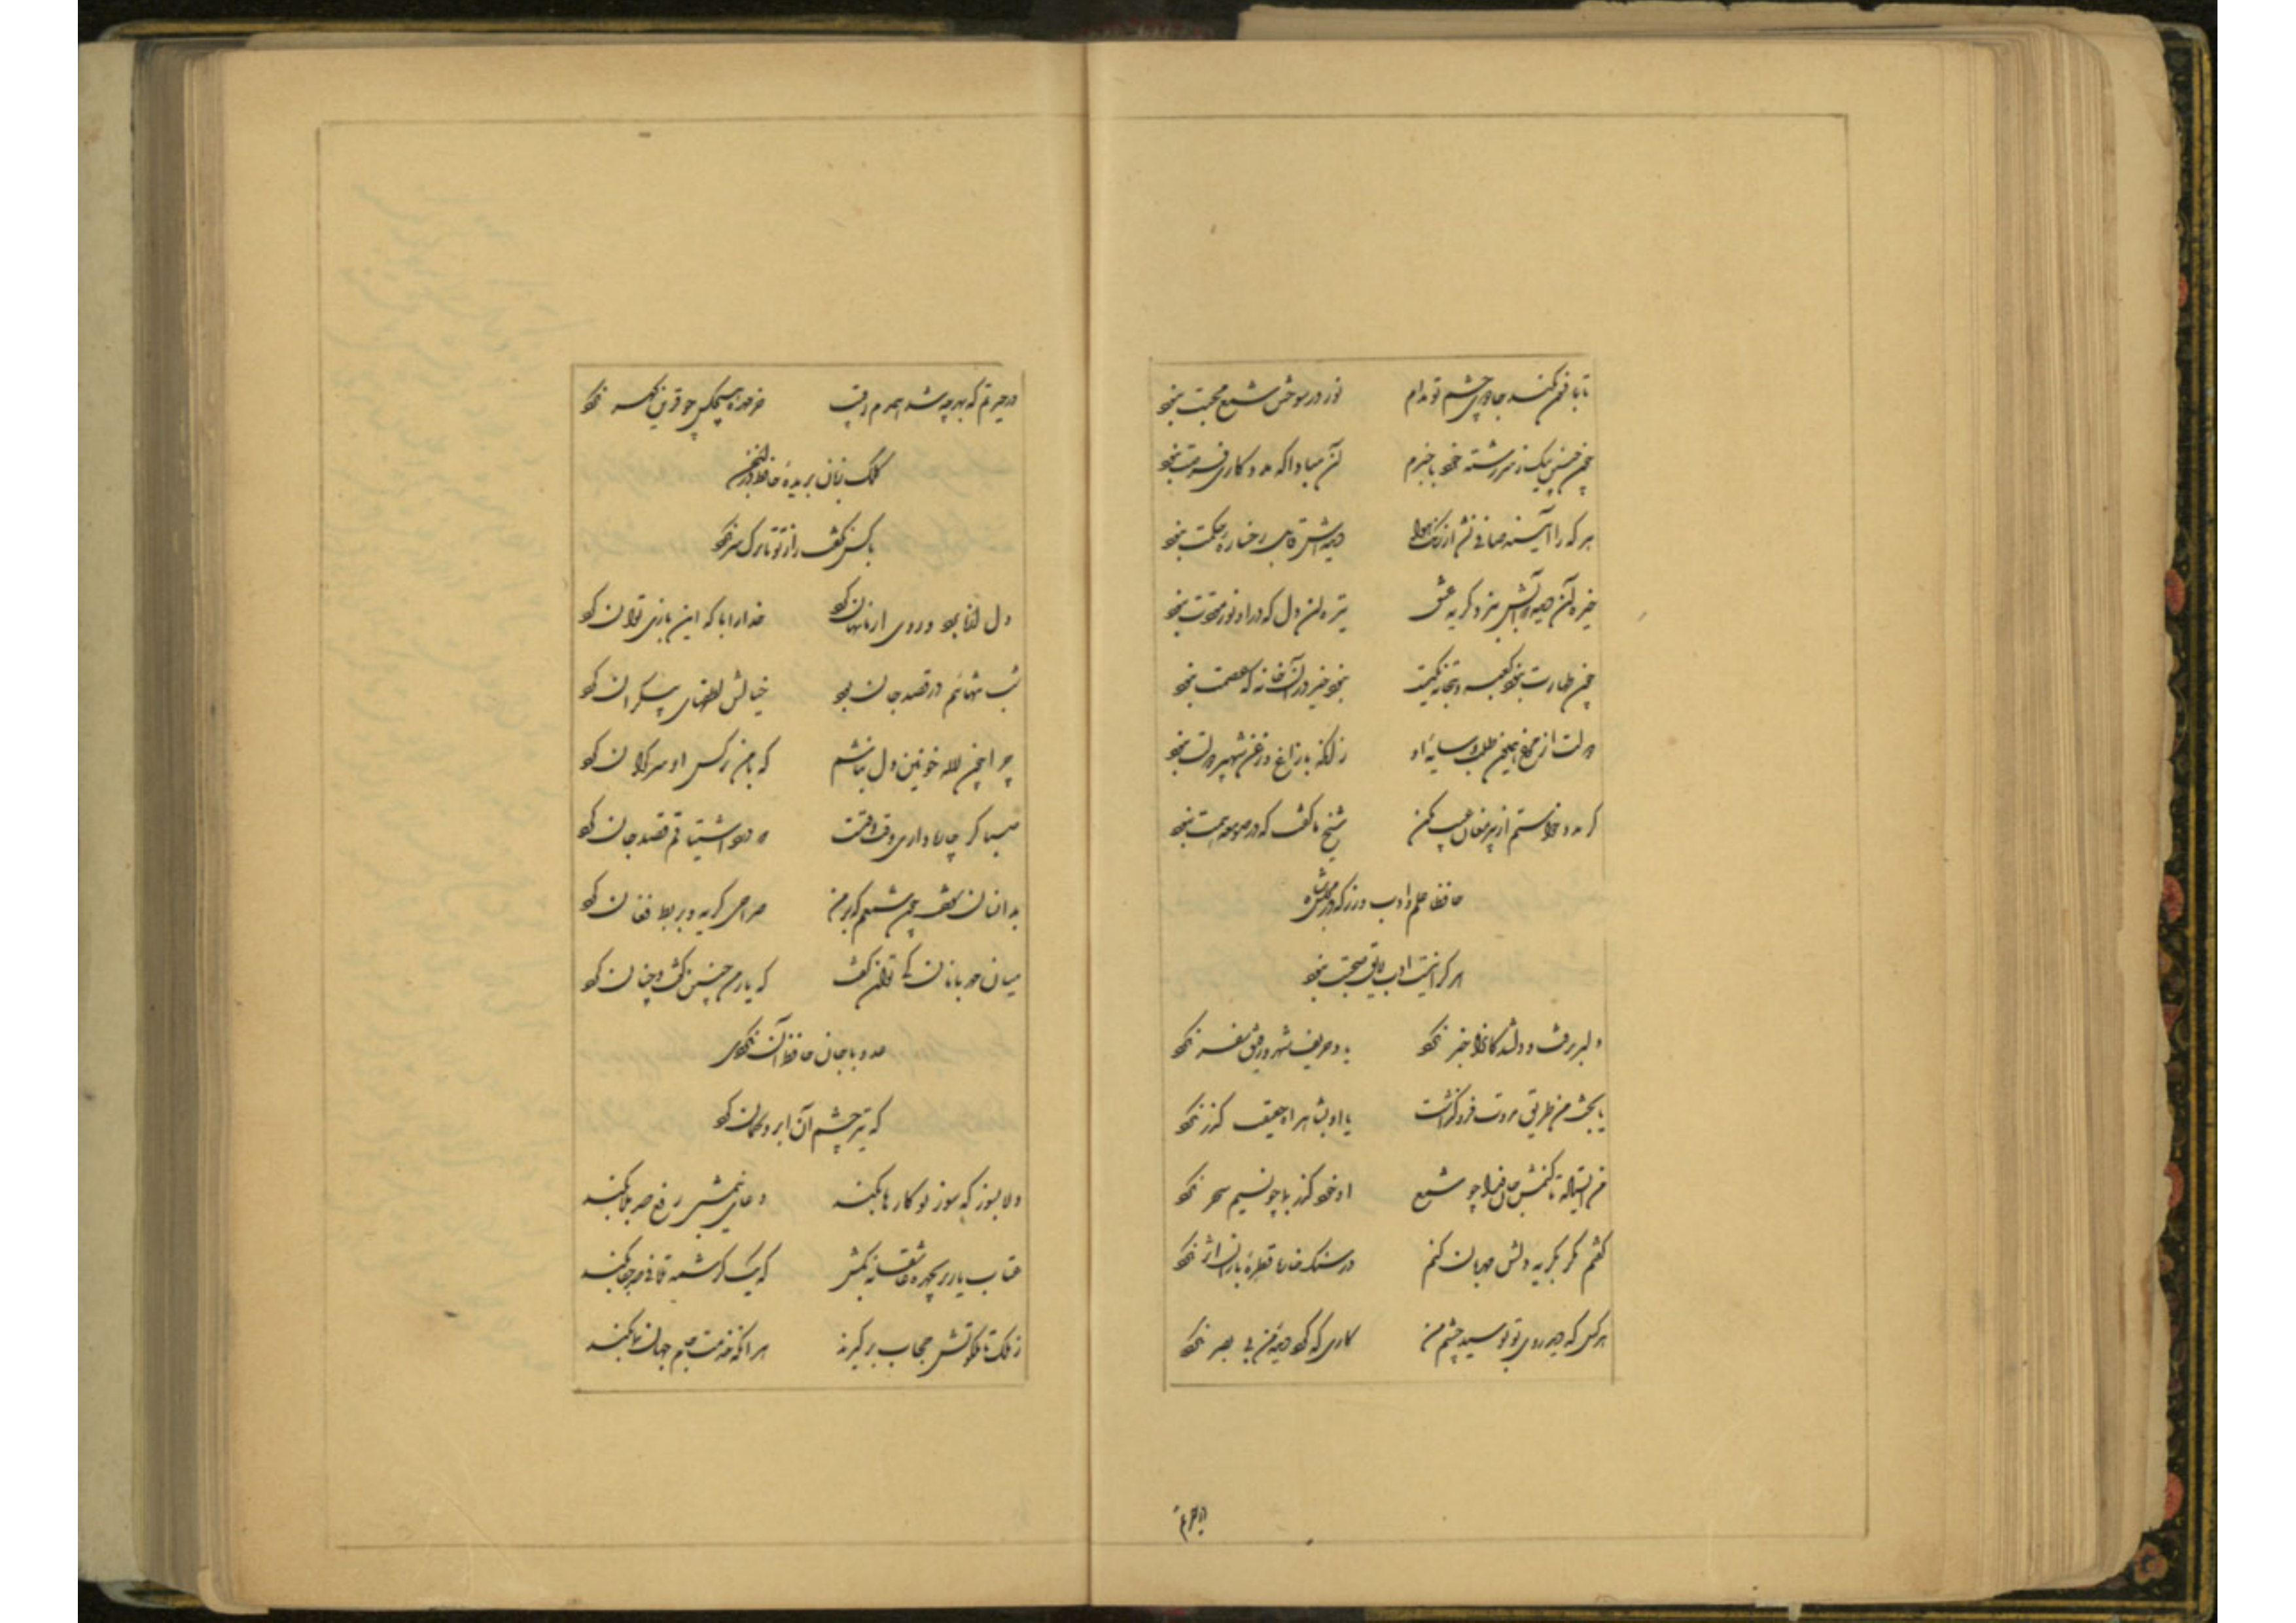 تا بافسون نکند جادوی چشم تو مدام نور در سوختن شمع محبت نبود
چون چنین نیک ز سررشته خود بیخبرم آن مبادا که مددکاری فرصت نبود
هر که را آینه صافی نشد از زنگ هوا دیده‌اش قابل رخساره حکمت نبود
خیره آن دیده که آبش نبرد گریه عشق تیره آن دل که در او نور مودت نبود
چون طهارت نبود کعبه و بتخانه یکیست نبود خیر در آن خانه که عصمت نبود
دولت از مرغ همایون طلب و سایه او زانکه با زاغ و زغن شهپر دولت نبود
گر مدد خواستم از پیر مغان عیب مکن شیخ ما گفت که در صومعه همت نبود
حافظا علم و ادب ورز که در مجلس شاه
هر که را نیست ادب لایق صحبت نبود
دلبر برفت و دلشدگان را خبر نکرد یاد حریف شهر و رفیق سفر نکرد
یا بخت من طریق مروت فرو گذاشت یا او بشاهراه حقیقت گذر نکرد
من ایستاده تا کنمش جان فدا چو شمع او خود گذر بما چو نسیم سحر نکرد
گفتم مگر بگریه دلش مهربان کنم در سنگ خاره قطره باران اثر نکرد
هر کس که دید روی تو بوسید چشم من کاری که کرد دیده من بی بصر نکرد
در حیرتم
در حیرتم که بهر چه شد همدم رقیب خرمهره هیچکس چو قرین گهر نکرد
کلک زبان بریده حافظ در انجمن
با کس نگفت راز تو تا ترک سر نکرد
دل از ما برد و روی از ما نهان کرد خدا را با که این بازی توان کرد
شب تنهائیم در قصد جان بود خیالش لطفهای بیکران کرد
چرا چون لاله خونین دل نباشم که با من نرگس او سرگران کرد
صبا گر چاره داری وقت وقتست که درد اشتیاقم قصد جان کرد
بدانسان سوخت چون شمعم که بر من صراحی گریه و بربط فغان کرد
میان مهربانان کی توان گفت که یار من چنین گفت و چنان کرد
عدو با جان حافظ آن نکردی
که تیر چشم آن ابرو کمان کرد
دلا بسوز که سوز تو کارها بکند دعای نیمشبی رفع صد بلا بکند
عتاب یار پریچهره عاشقانه بکش که یک کرشمه تلافی صد جفا بکند
ز ملک تا ملکوتش حجاب برگیرند هر آنکه خدمت جام جهان‌نما بکند